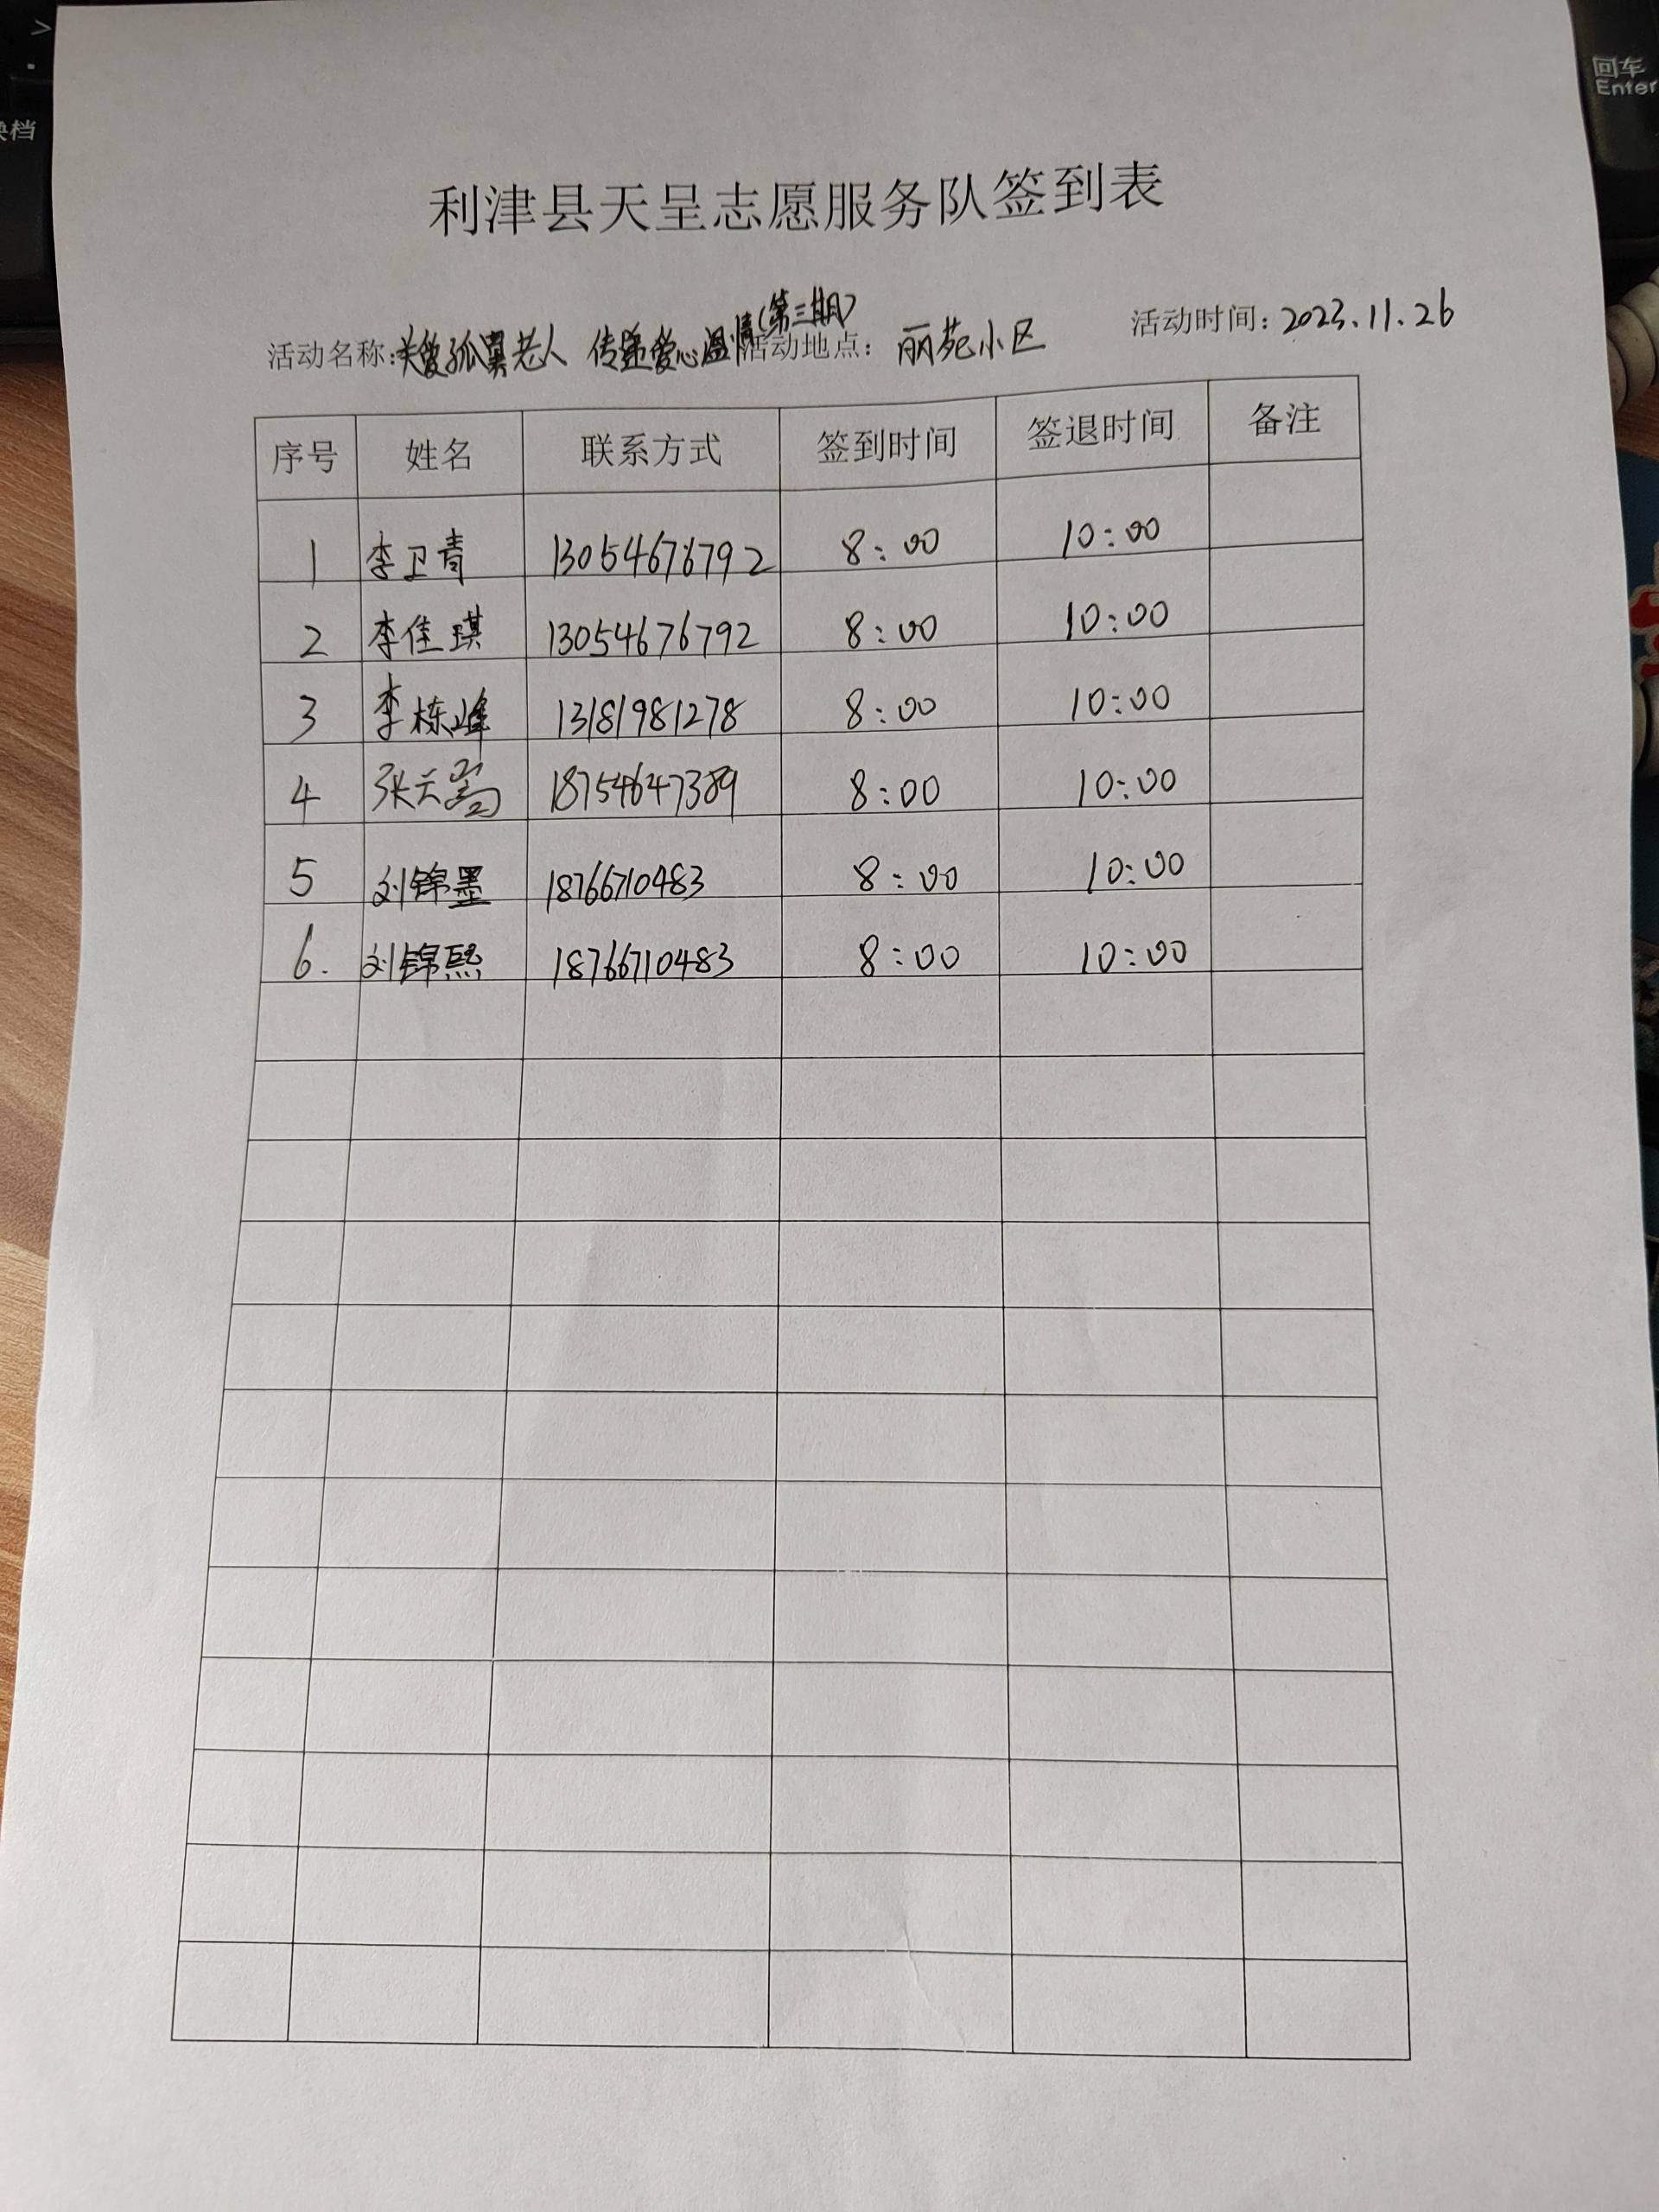 回车
Enter
档
利津县天呈志愿服务队签到表
活动名称：关爱孤寡老人 传递爱心温情（第三期） 活动地点： 丽苑小区 活动时间：2023.11.26
序号 姓名 联系方式 签到时间 签退时间 备注
1 李卫青 13054676792 8:00 10:00
2 李佳琪 13054676792 8:00 10:00
3 李栋峰 13181981278 8:00 10:00
4 张云嵩 18754647389 8:00 10:00
5 刘锦墨 18766710483 8:00 10:00
6. 刘锦熙 18766710483 8:00 10:00